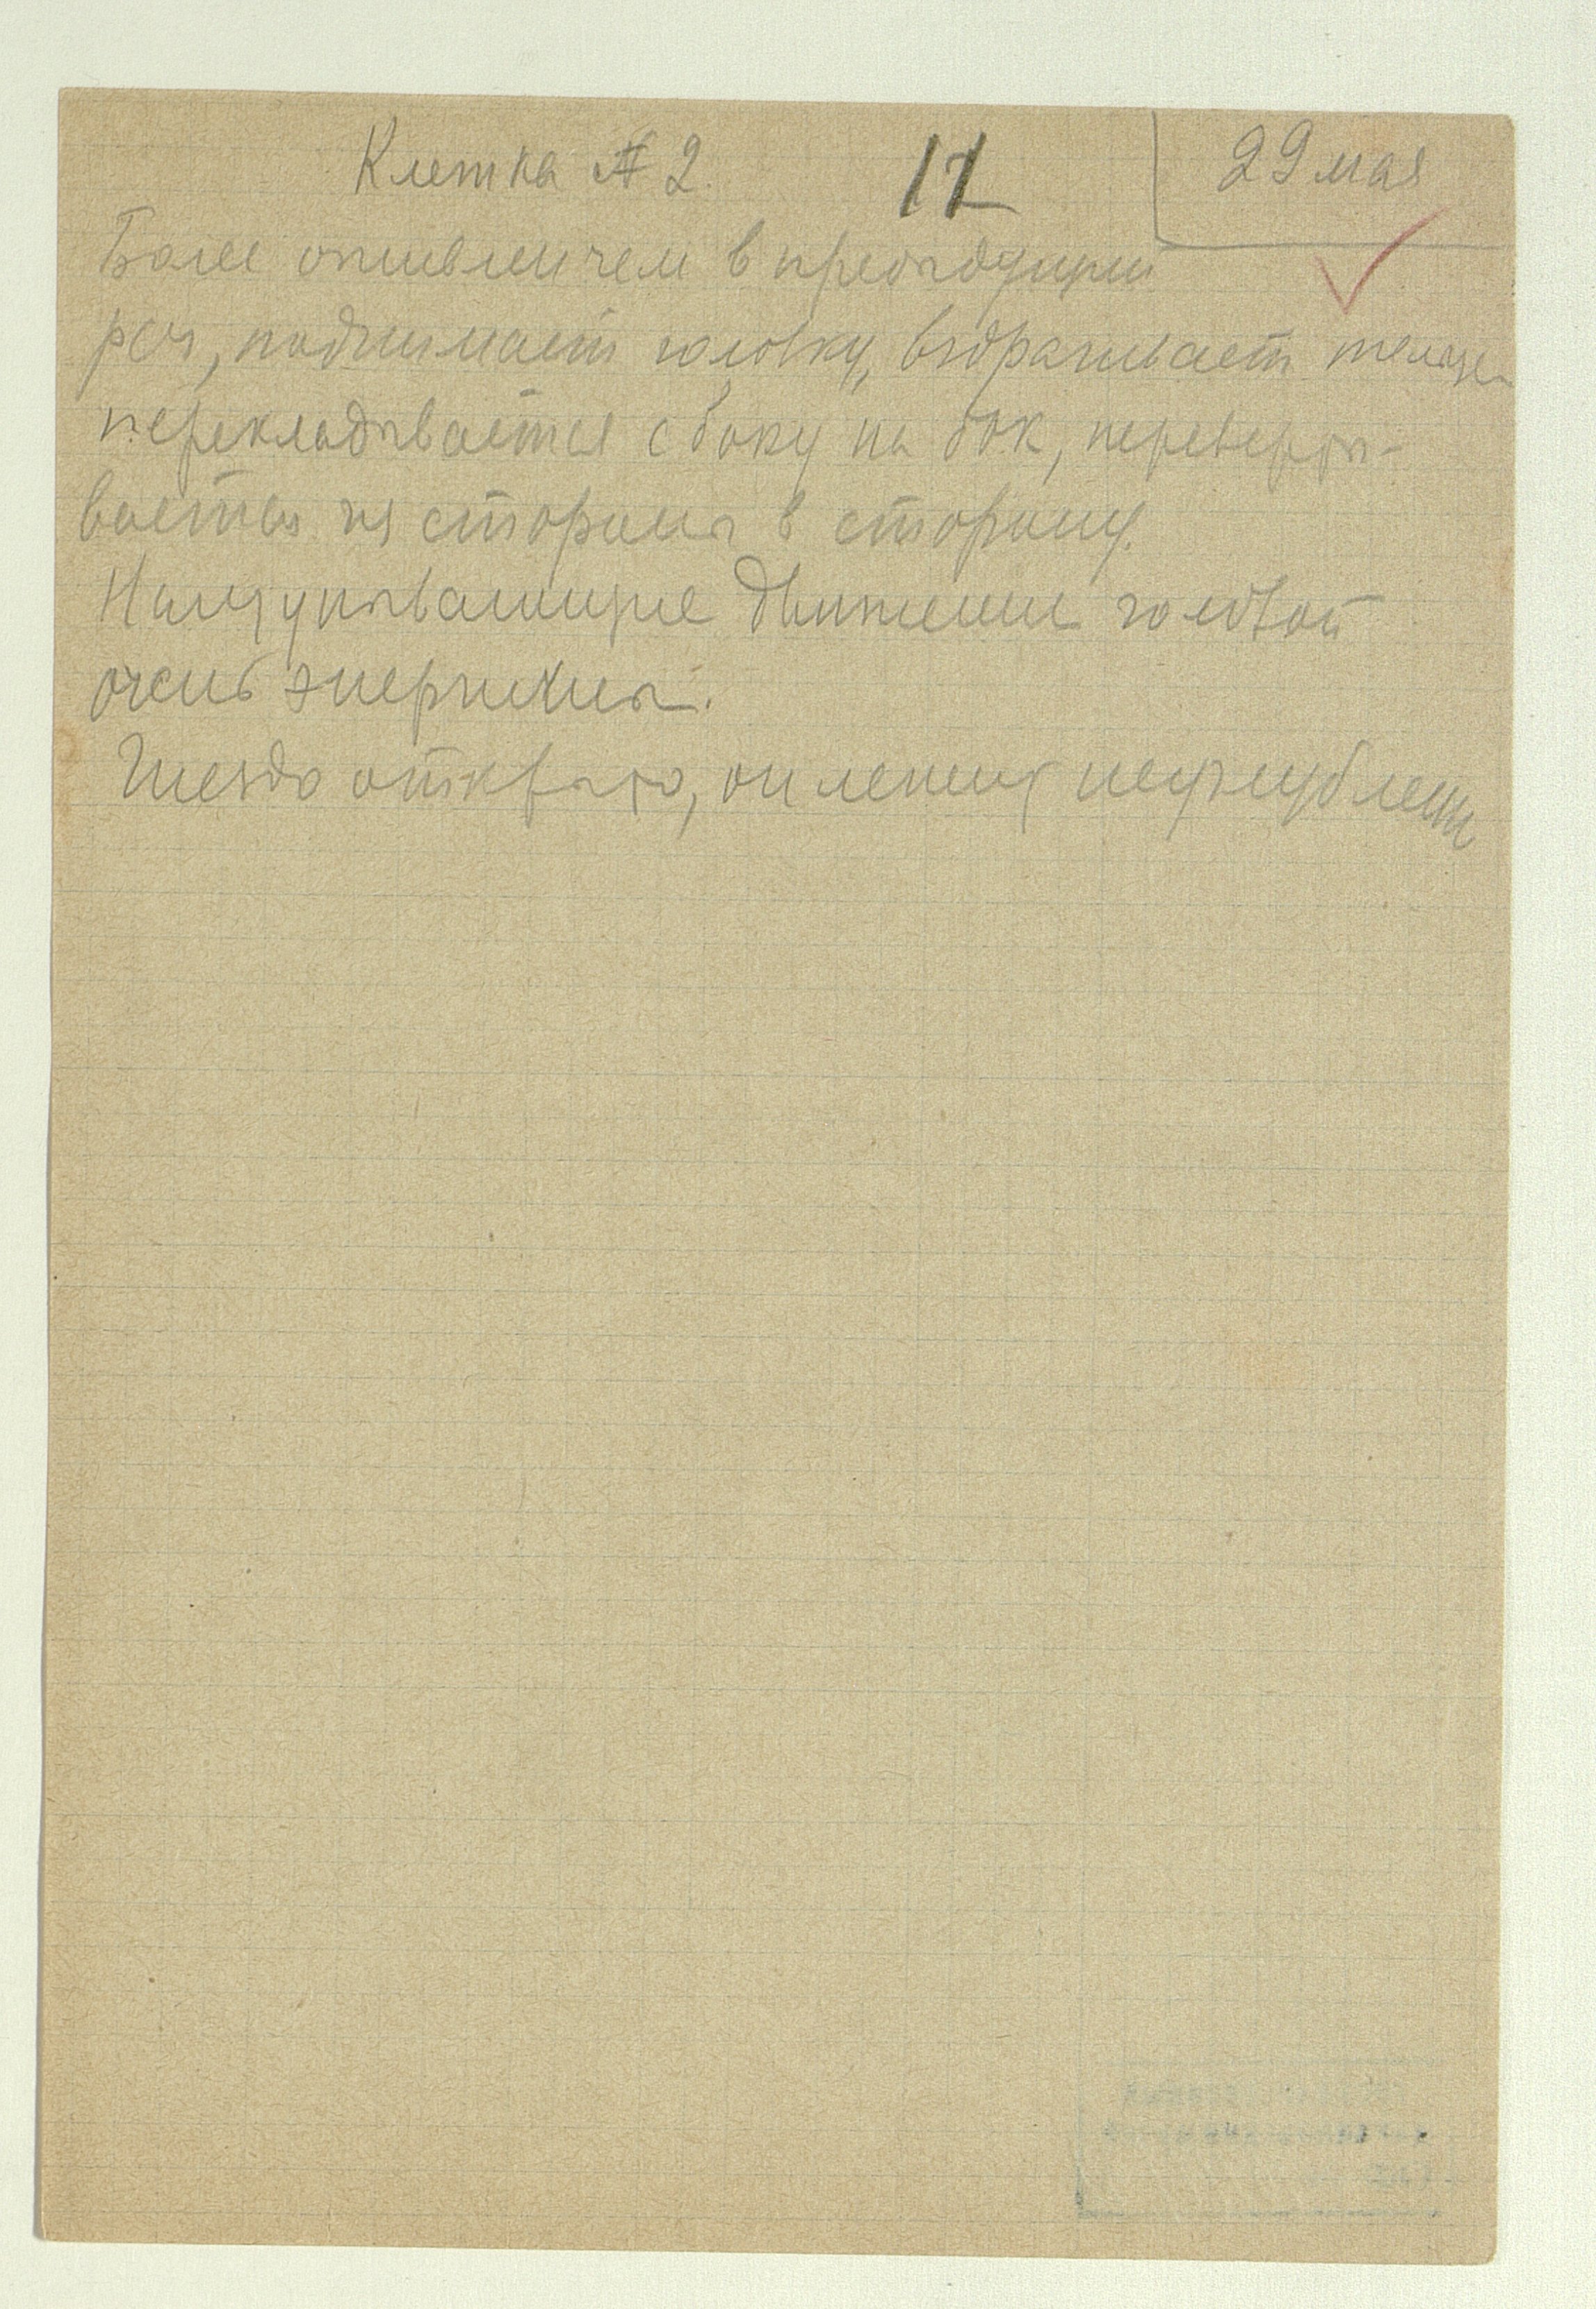 Клетка № 2. 11 29 мая
Более оживлен чем в предыдущий
раз, поднимает головку, вздрагивает тельцем
перекладывается с боку на бок, переверты-
вается из стороны в сторону.
Нащупывающие движения головой
очень энергичны.
Гнездо открыто, он лежит